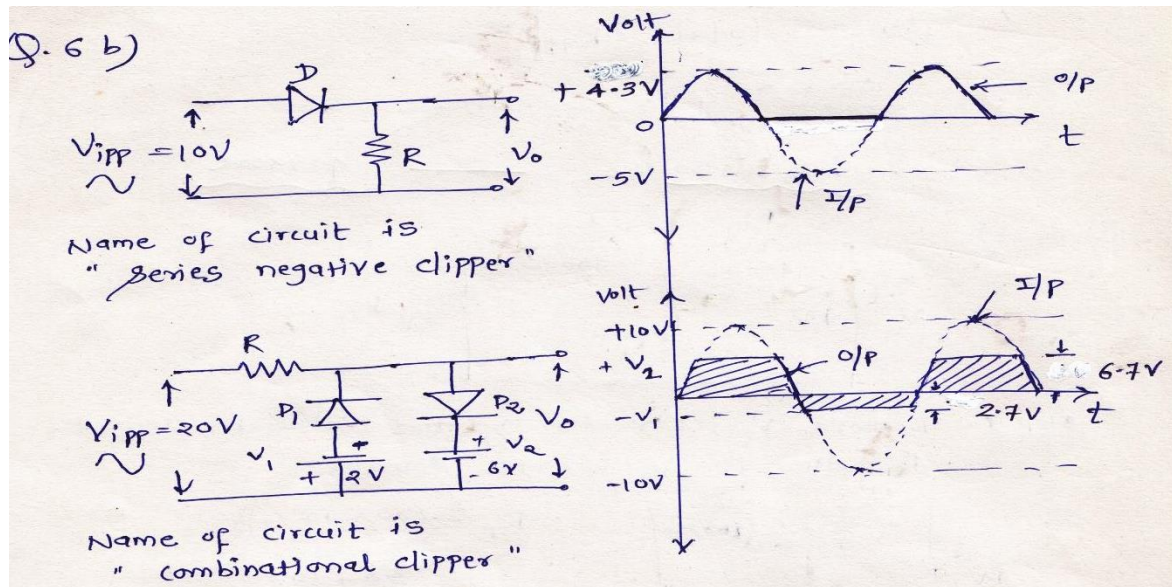 Q. 6 b)
D
Vipp = 10V
R
Vo
Name of circuit is
" Series negative clipper "
Volt
+ 4.3V
0
-5V
O/P
t
I/P
R
Vipp = 20V
D1
V1
+
+ 2V
D2
+ V2
- 6V
Vo
Name of circuit is
" combinational clipper "
Volt
+10V
+ V2
-V1
-10V
O/P
I/P
6.7V
2.7V
t